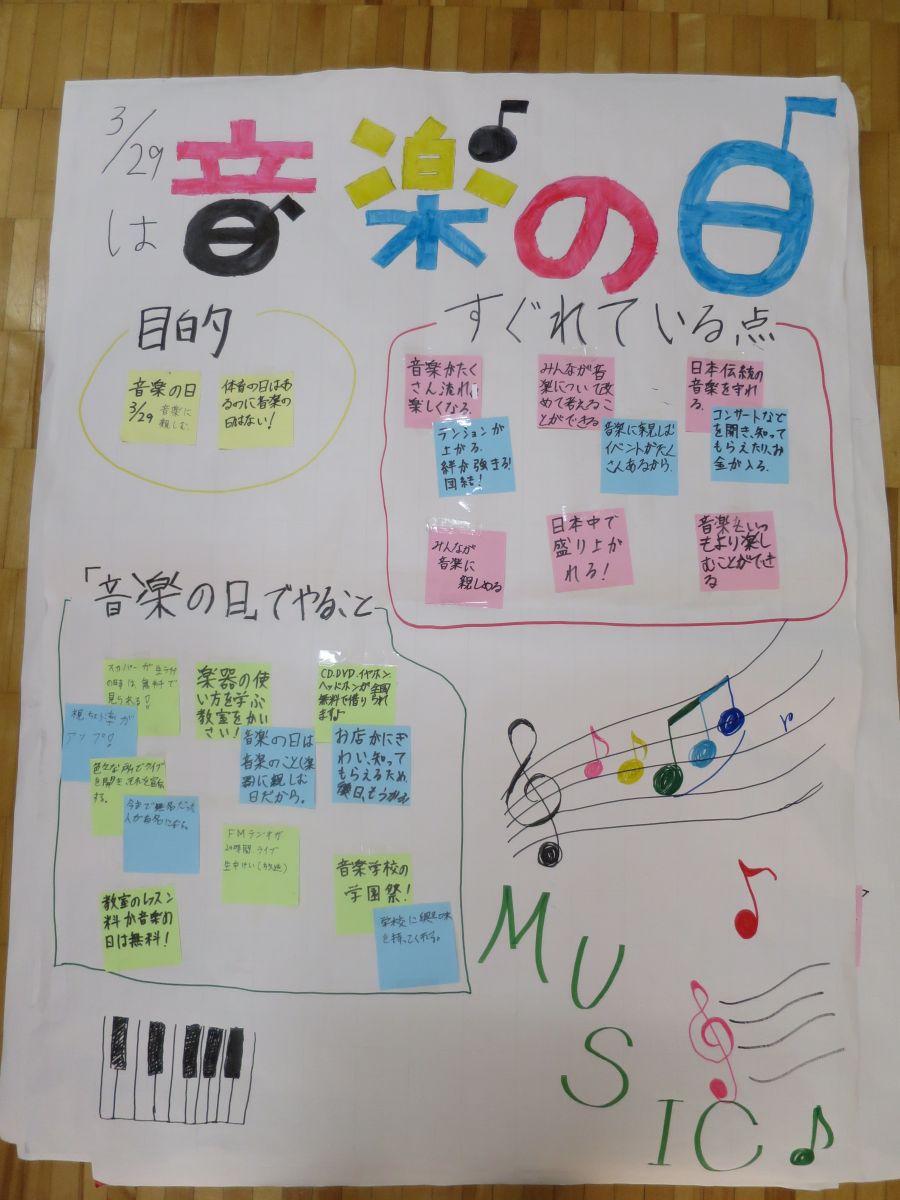 3/29
は
音楽の日
目的
音楽の日
3/29 音楽に
親しむ
体育の日はあ
るのに音楽の
日はない!
すぐれている点
音楽がたく
さん流れ、
楽しくなる。
みんなが音
楽について改
めて考えるこ
とができる
日本伝統の
音楽を守れ
る。
テンションが
上がる。
絆が強まる!
団結!
音楽に親しむ
イベントがたく
さんあるから。
コンサートなど
を開き、知って
もらえたり、お
金が入る。
みんなが
音楽に
親しめる
日本中で
盛り上が
れる!
音楽をいつ
もより楽し
むことができ
る
「音楽の日」でやること
スカパーが生ライブ
の時は無料で
見られる!
視ちょう率が
アップ!
色々な所でライブ
を開き
する。
今まで無名だった
人が有名になる。
楽器の使
い方を学ぶ
教室をかい
さい!
音楽の日は
音楽のこと(楽
器)に親しむ
日だから。
CD、DVD、イヤホン
ヘッドホンが全国
無料で借りられ
ます♪
お店がにぎ
わい、知って
もらえるため、
後日、もうかる
FMラジオが
24時間ライブ
生中けい(放送)
音楽学校の
学園祭!
学校に興味
を持ってくれる。
教室のレッスン
料が音楽の
日は無料!
MUSIC